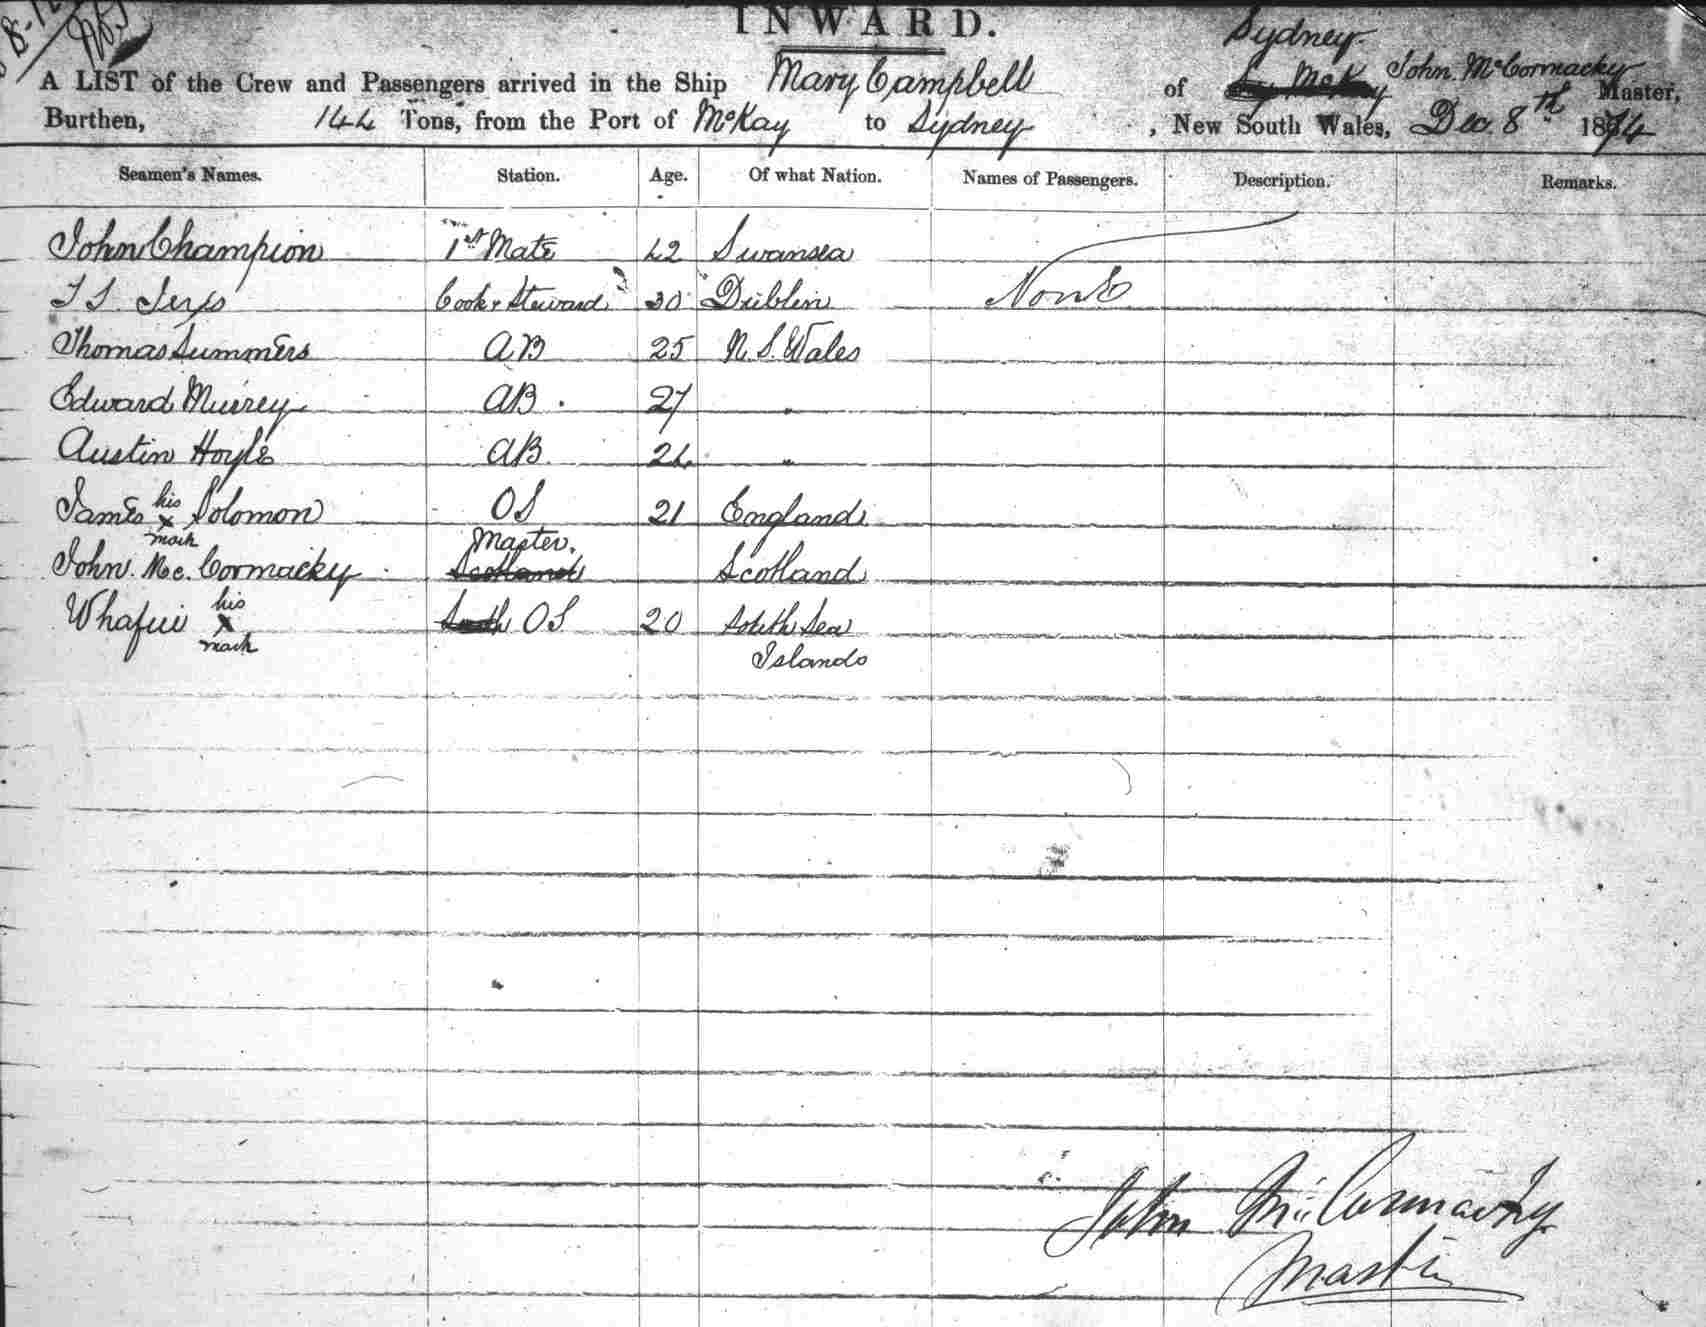 INWARD.
Sydney
A LIST of the Crew and Passengers arrived in the Ship Mary Campbell of John McCormacky Master,
Burthen, 144 Tons, from the Port of McKay to Sydney, New South Wales, Dec. 8th 1874
Seamen's Names. Station. Age. Of what Nation. Names of Passengers. Description. Remarks.
John Champion 1st Mate 42 Swansea
Cook & Steward 30 Dublin None
Thomas Summers AB 25 N. S. Wales
Edward Murrey AB. 27 "
Austin Hoyle AB 24 "
James his x mark Solomon OS 21 England
Master.
John Mc. Cormacky Scotland Scotland
Whafui his x mark South OS 20 South Sea
Islands
John McCormacky
Master